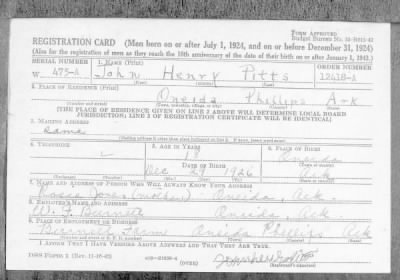 FORM APPROVED
Budget Bureau No. 33-R011-42
REGISTRATION CARD—(Men born on or after July 1, 1924, and on or before December 31, 1924)
(Also for the registration of men as they reach the 18th anniversary of the date of their birth on or after January 1, 1943.)
SERIAL NUMBER 1. NAME (Print) ORDER NUMBER
W 475-A John Henry Pitts 12418-A
(First) (Middle) (Last)
2. PLACE OF RESIDENCE (Print)
Oneida Phillips Ark
(Number and street) (Town, township, village, or city) (County) (State)
[THE PLACE OF RESIDENCE GIVEN ON LINE 2 ABOVE WILL DETERMINE LOCAL BOARD
JURISDICTION; LINE 2 OF REGISTRATION CERTIFICATE WILL BE IDENTICAL]
3. MAILING ADDRESS
Same
[Mailing address if other than place indicated on line 2. If same, insert word same]
4. TELEPHONE 5. AGE IN YEARS 6. PLACE OF BIRTH
18 Oneida
DATE OF BIRTH
Dec 29 1926 Ark
7. NAME AND ADDRESS OF PERSON WHO WILL ALWAYS KNOW YOUR ADDRESS
Jones (mother) Oneida Ark.
8. EMPLOYER'S NAME AND ADDRESS
Burnett Oneida Ark
9. PLACE OF EMPLOYMENT OR BUSINESS
Burnett Farm Oneida Phillips Ark
I AFFIRM THAT I HAVE VERIFIED ABOVE ANSWERS AND THAT THEY ARE TRUE.
(OVER)